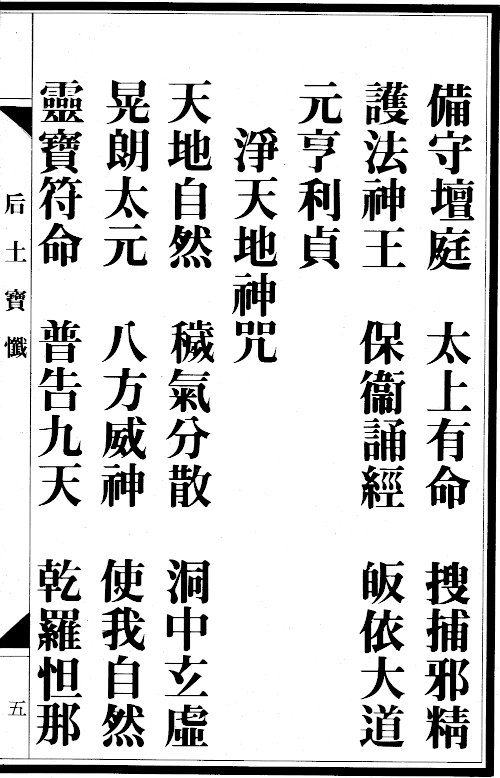 備守壇庭　太上有命　搜捕邪精
護法神王　保衞誦經　皈依大道
元亨利貞
淨天地神咒
天地自然　穢氣分散　洞中玄虛
晃朗太元　八方威神　使我自然
靈寶符命　普告九天　乾羅怛那
后土寶懺
五